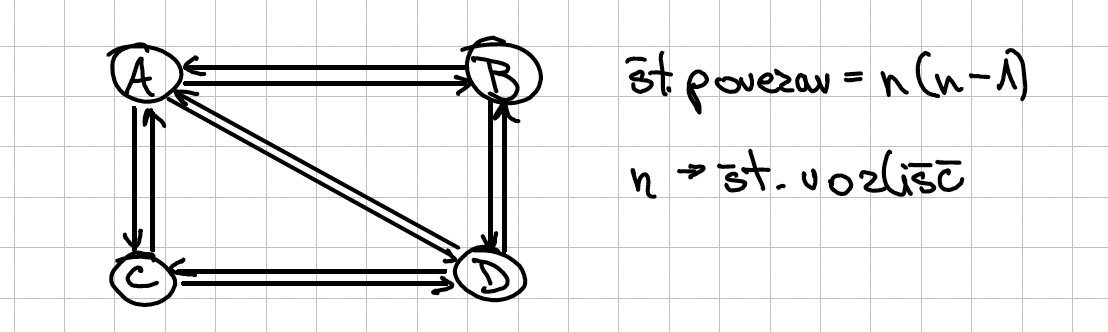 A
B
št. povezav = n(n-1)
n → št. vozlišč
C
D